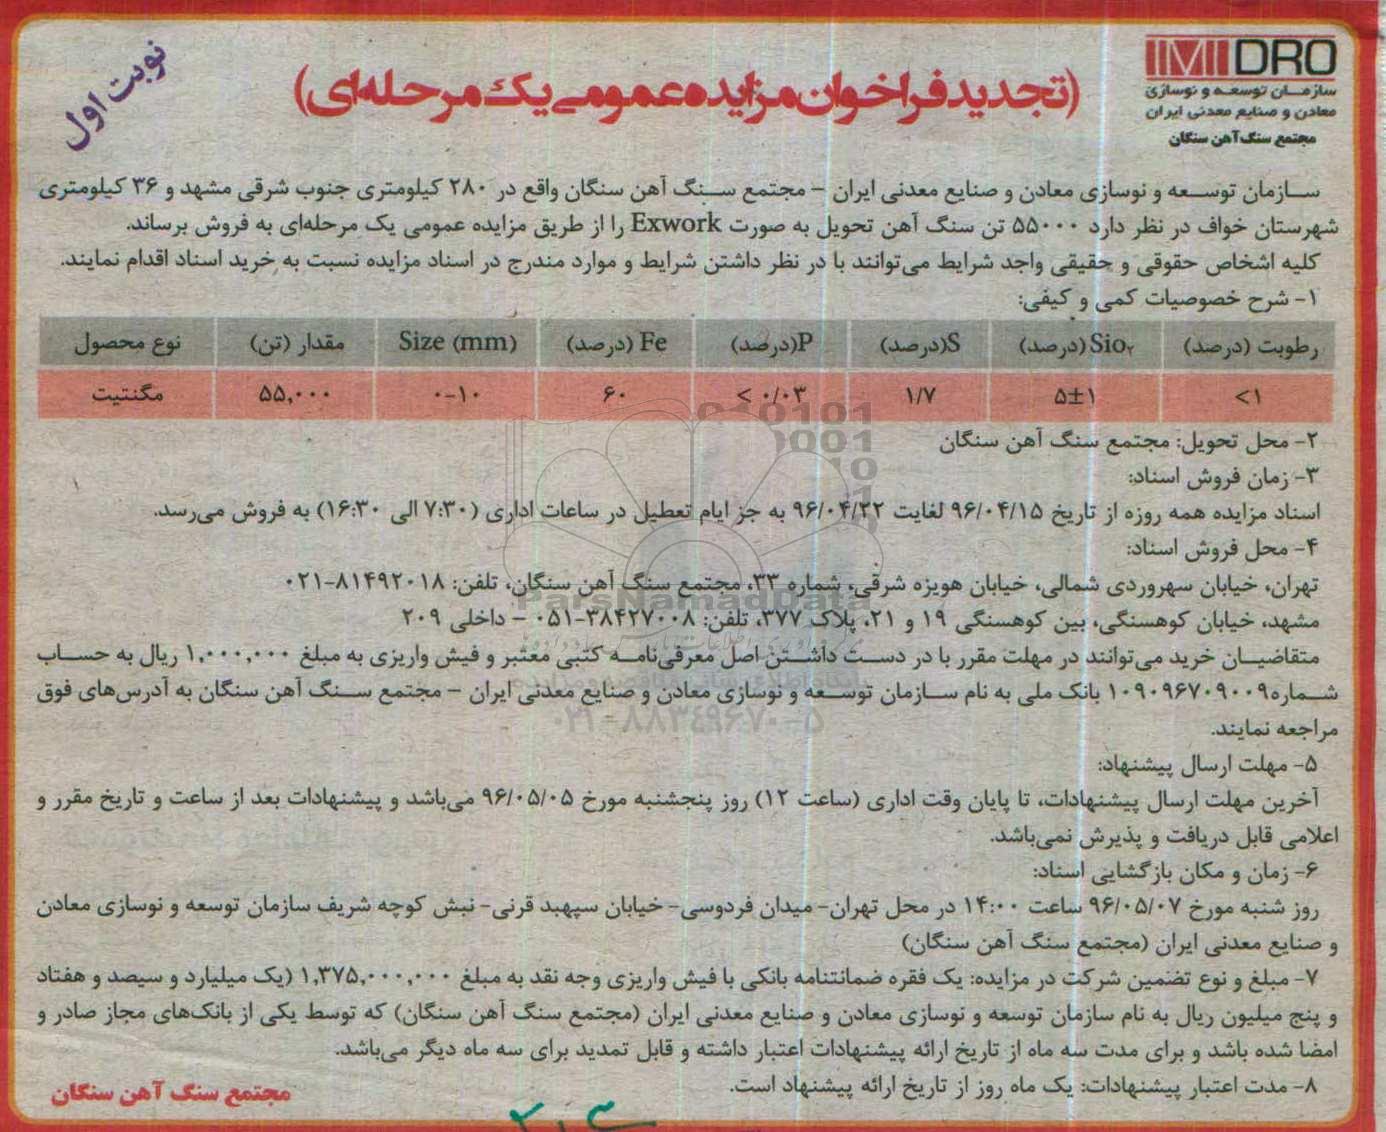 IMIDRO
سازمان توسعه و نوسازی
معادن و صنایع معدنی ایران
مجتمع سنگ آهن سنگان
(تجدید فراخوان مزایده عمومی یک مرحله‌ای)
نوبت اول
سازمان توسعه و نوسازی معادن و صنایع معدنی ایران – مجتمع سنگ آهن سنگان واقع در ۲۸۰ کیلومتری جنوب شرقی مشهد و ۳۶ کیلومتری
شهرستان خواف در نظر دارد ۵۵۰۰۰ تن سنگ آهن تحویل به صورت Exwork را از طریق مزایده عمومی یک مرحله‌ای به فروش برساند.
کلیه اشخاص حقوقی و حقیقی واجد شرایط می‌توانند با در نظر داشتن شرایط و موارد مندرج در اسناد مزایده نسبت به خرید اسناد اقدام نمایند.
۱- شرح خصوصیات کمی و کیفی:
رطوبت (درصد) Sio۲ (درصد) S(درصد) P(درصد) Fe (درصد) Size (mm) مقدار (تن) نوع محصول
<۱ ۵±۱ ۱/۷ < ۰/۰۳ ۶۰ ۰-۱۰ ۵۵,۰۰۰ مگنتیت
۲- محل تحویل: مجتمع سنگ آهن سنگان
۳- زمان فروش اسناد:
اسناد مزایده همه روزه از تاریخ ۹۶/۰۴/۱۵ لغایت ۹۶/۰۴/۲۲ به جز ایام تعطیل در ساعات اداری (۷:۳۰ الی ۱۶:۳۰) به فروش می‌رسد.
۴- محل فروش اسناد:
تهران، خیابان سهروردی شمالی، خیابان هویزه شرقی، شماره ۳۳، مجتمع سنگ آهن سنگان، تلفن: ۸۱۴۹۲۰۱۸-۰۲۱
مشهد، خیابان کوهسنگی، بین کوهسنگی ۱۹ و ۲۱، پلاک ۳۷۷، تلفن: ۳۸۴۲۷۰۰۸-۰۵۱ – داخلی ۲۰۹
متقاضیان خرید می‌توانند در مهلت مقرر با در دست داشتن اصل معرفی‌نامه کتبی معتبر و فیش واریزی به مبلغ ۱,۰۰۰,۰۰۰ ریال به حساب
شماره۱۰۹۰۹۶۷۰۹۰۰۹ بانک ملی به نام سازمان توسعه و نوسازی معادن و صنایع معدنی ایران – مجتمع سنگ آهن سنگان به آدرس‌های فوق
مراجعه نمایند.
۵- مهلت ارسال پیشنهاد:
آخرین مهلت ارسال پیشنهادات، تا پایان وقت اداری (ساعت ۱۲) روز پنجشنبه مورخ ۹۶/۰۵/۰۵ می‌باشد و پیشنهادات بعد از ساعت و تاریخ مقرر و
اعلامی قابل دریافت و پذیرش نمی‌باشد.
۶- زمان و مکان بازگشایی اسناد:
روز شنبه مورخ ۹۶/۰۵/۰۷ ساعت ۱۴:۰۰ در محل تهران- میدان فردوسی- خیابان سپهبد قرنی- نبش کوچه شریف سازمان توسعه و نوسازی معادن
و صنایع معدنی ایران (مجتمع سنگ آهن سنگان)
۷- مبلغ و نوع تضمین شرکت در مزایده: یک فقره ضمانتنامه بانکی با فیش واریزی وجه نقد به مبلغ ۱,۳۷۵,۰۰۰,۰۰۰ (یک میلیارد و سیصد و هفتاد
و پنج میلیون ریال به نام سازمان توسعه و نوسازی معادن و صنایع معدنی ایران (مجتمع سنگ آهن سنگان) که توسط یکی از بانک‌های مجاز صادر و
امضا شده باشد و برای مدت سه ماه از تاریخ ارائه پیشنهادات اعتبار داشته و قابل تمدید برای سه ماه دیگر می‌باشد.
۸- مدت اعتبار پیشنهادات: یک ماه روز از تاریخ ارائه پیشنهاد است.
مجتمع سنگ آهن سنگان
ParsNamadData
۰۲۱-۸۸۳۴۹۶۷۰-۵